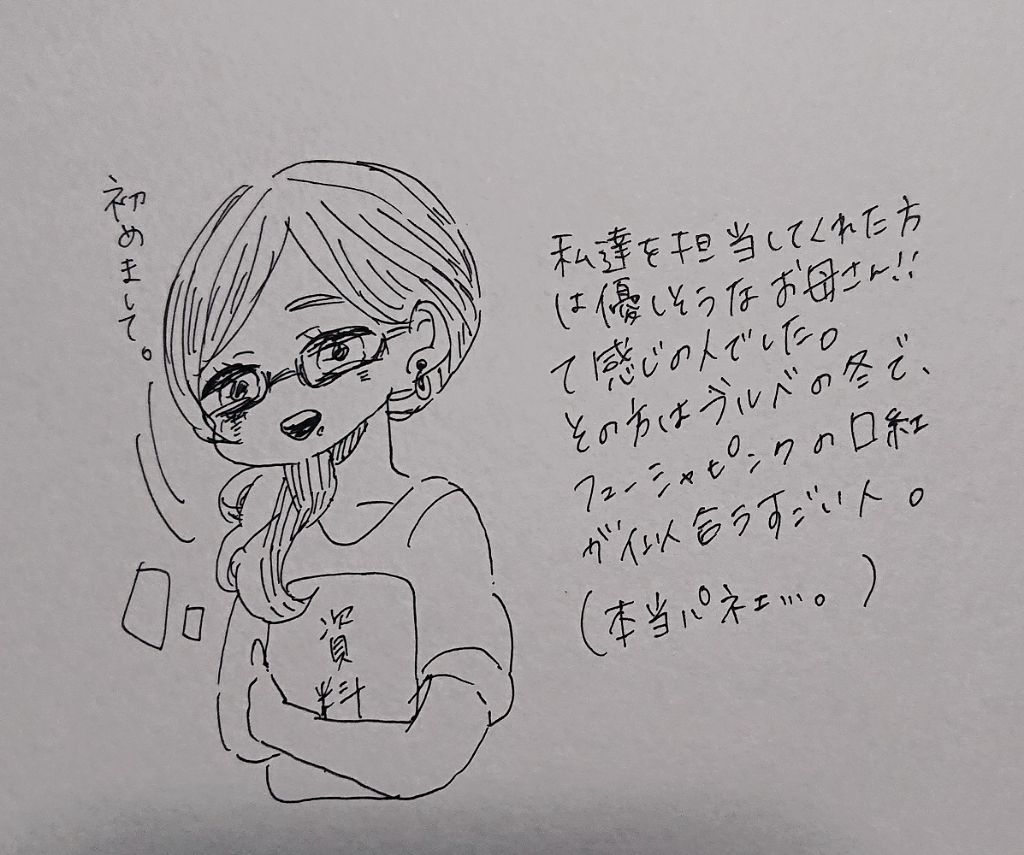 初めまして。
私達を担当してくれた方
は優しそうなお母さん!!
て感じの人でした。
その方はブルベの冬で、
フューシャピンクの口紅
が似合うすごい人。
(本当パネェ…。)
資料